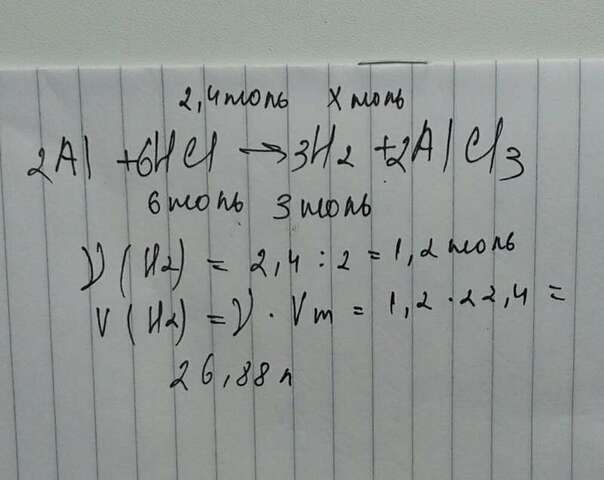 2,4 моль х моль
2Al + 6HCl → 3H2 + 2AlCl3
6 моль 3 моль
ν (H2) = 2,4 : 2 = 1,2 моль
V (H2) = ν · Vm = 1,2 · 22,4 =
26,88 л